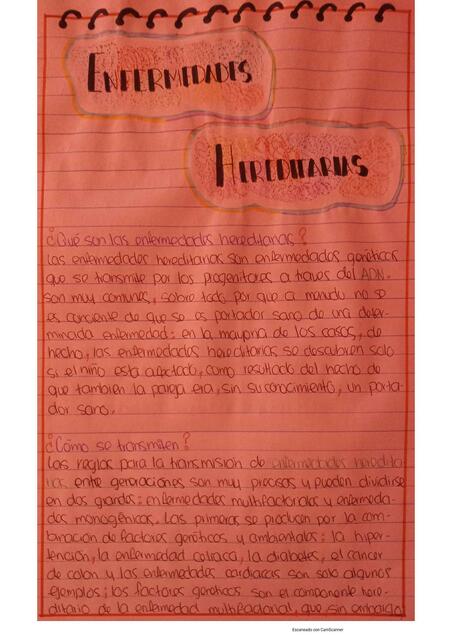 ENFERMEDADES
HEREDITARIAS
¿Qué son las enfermedades hereditarias?
Las enfermedades hereditarias son enfermedades genéticas
que se transmite por los progenitores a traves del ADN.
son muy comunes, sobre todo por que a menudo no se
es conciente de que se es portador sano de una deter-
minada enfermedad: en la mayoria de los casos, de
hecho, las enfermedades hereditarias se descubren solo
si el niño esta afectado, como resultado del hecho de
que tambien la pareja era, sin su conocimiento, un porta-
dor sano.
¿Cómo se transmiten?
Las reglas para la transmision de enfermedades heredita
rias entre generaciones son muy precisas y pueden dividirse
en dos grandes: enfermedades multifactoriales y enfermeda-
des monogénicas. Las primeras se producen por la com-
binacion de factores genéticos y ambientales: la hiper-
tención, la enfermedad celiaca, la diabetes, el cancer
de colon y las enfermedades cardiacas son solo algunos
ejemplos; los factores geneticos son el componente here-
ditario de la enfermedad multifactorial, que sin embargo
Escaneado con CamScanner